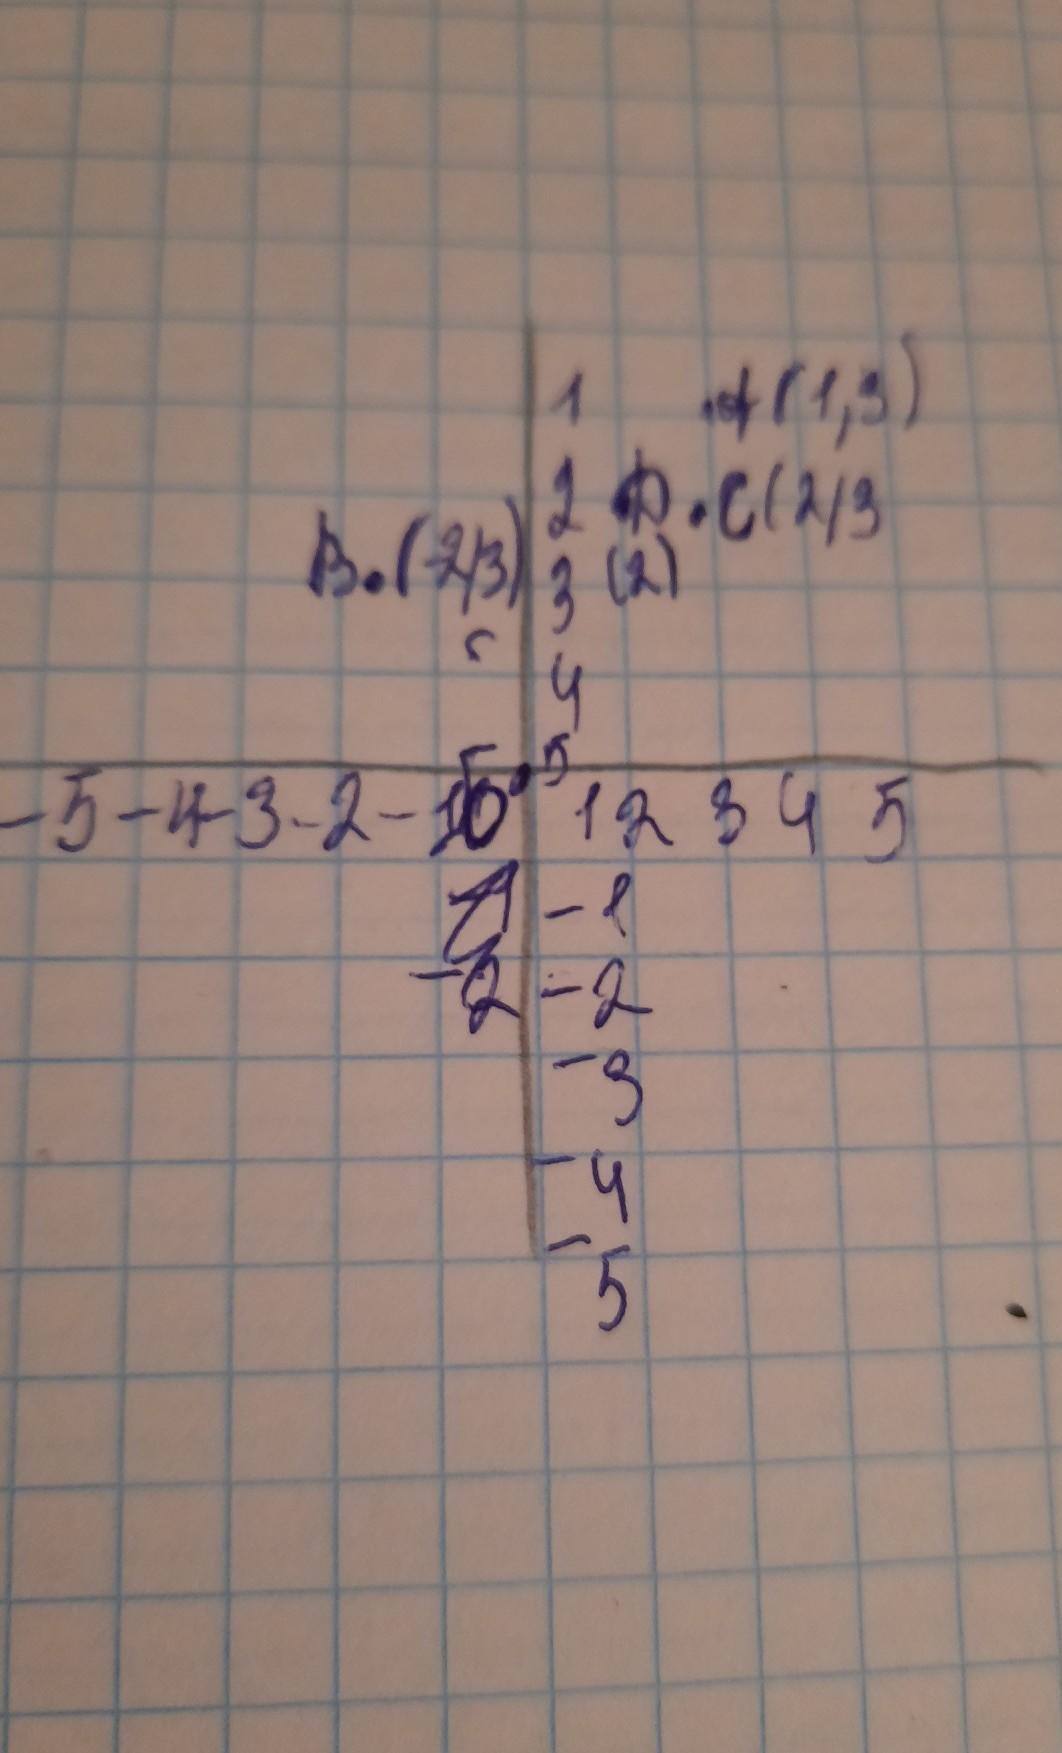 1 A(1,3)
2 D. C(2/3
B.(-2/3) 3 (2)
4
5
-5 -4 -3 -2 -1 0 1 2 3 4 5
-1
-2 -2
-3
-4
-5